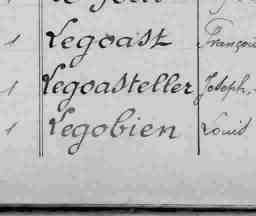 1 Legoast François
1 Legoasteller Joseph,
1 Legobien Louis